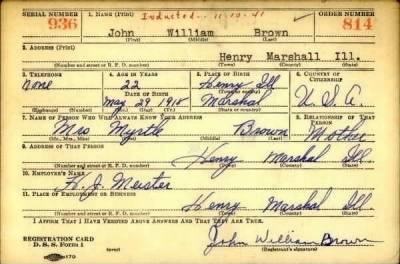 SERIAL NUMBER 1. NAME (Print) Inducted 11-13-41 ORDER NUMBER
936 John William Brown 814
(First) (Middle) (Last)
2. ADDRESS (Print)
Henry Marshall Ill.
(Number and street or R. F. D. number) (Town) (County) (State)
3. TELEPHONE 4. AGE IN YEARS 5. PLACE OF BIRTH 6. COUNTRY OF CITIZENSHIP
None 22 Henry Ill
DATE OF BIRTH (Town or county)
May 29 1918 Marshal U. S. A.
(Exchange) (Number) (Mo.) (Day) (Yr.) (State or country)
7. NAME OF PERSON WHO WILL ALWAYS KNOW YOUR ADDRESS 8. RELATIONSHIP OF THAT PERSON
Mrs Myrtle Brown Mother
(Mr., Mrs., Miss) (First) (Middle) (Last)
9. ADDRESS OF THAT PERSON
Henry Marshal Ill.
(Number and street or R. F. D. number) (Town) (County) (State)
10. EMPLOYER'S NAME
H. J. Meister
11. PLACE OF EMPLOYMENT OR BUSINESS
Henry Marshal Ill.
(Number and street or R. F. D. number) (Town) (County) (State)
I AFFIRM THAT I HAVE VERIFIED ABOVE ANSWERS AND THAT THEY ARE TRUE.
REGISTRATION CARD
D. S. S. Form 1 (over) John William Brown
(Registrant's signature)